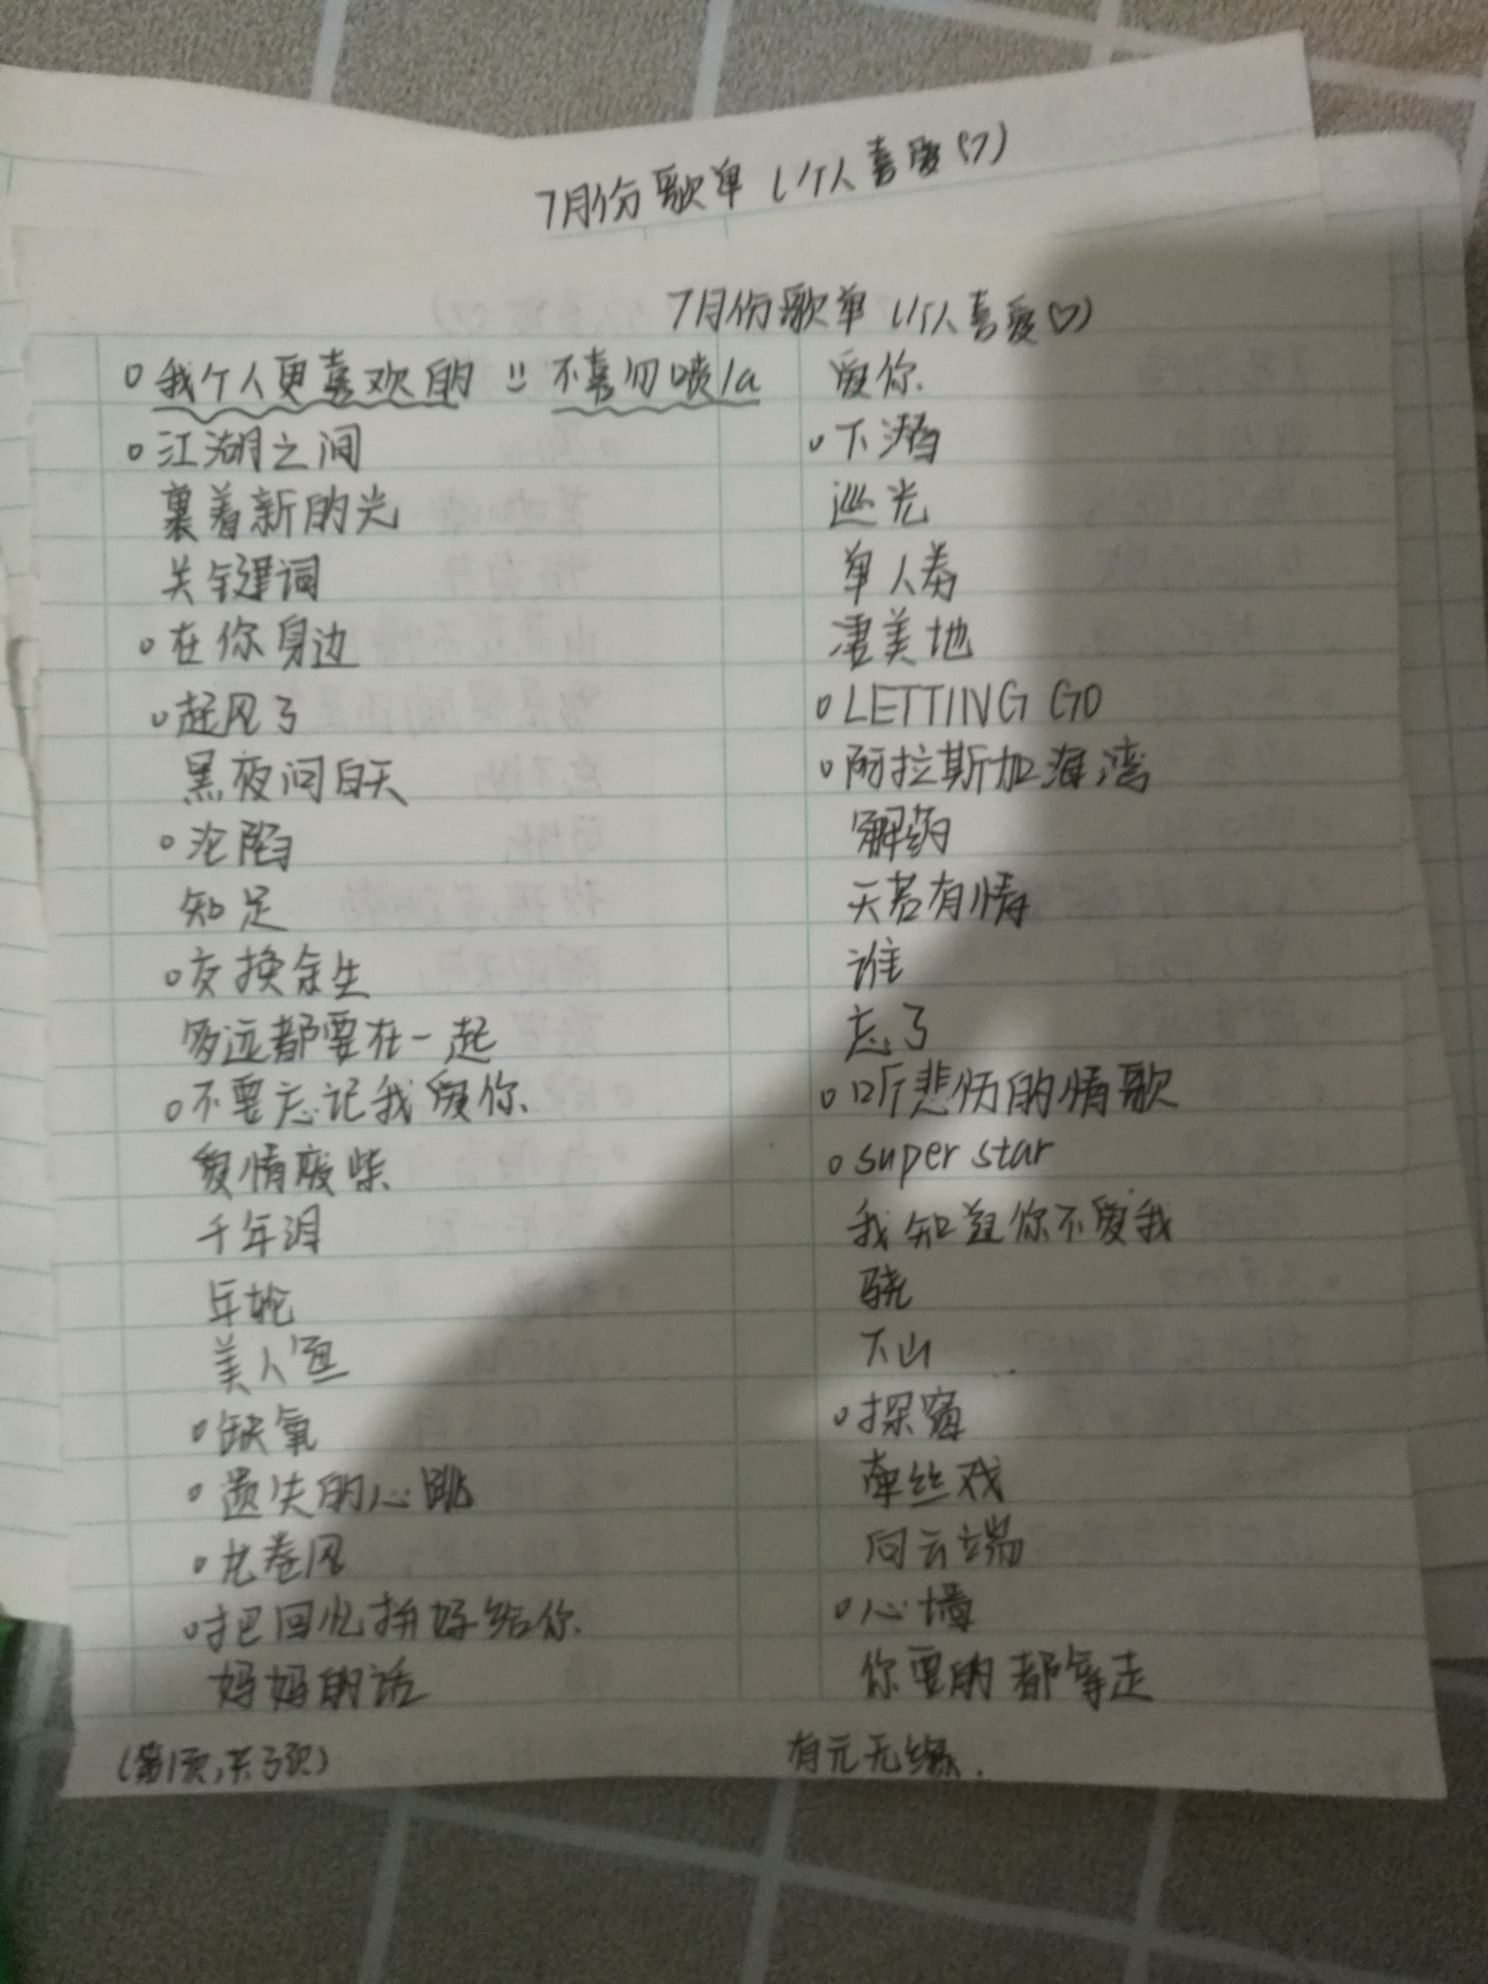 7月份歌单(个人喜爱♡)
7月份歌单(个人喜爱♡)
○我个人更喜欢的 !! 不喜勿喷la
○江湖之间
裹着新的光
关键词
○在你身边
○起风了
黑夜问白天
○沦陷
知足
○交换余生
多远都要在一起
○不要忘记我爱你
爱情废柴
千年泪
年轮
美人鱼
○缺氧
○遗失的心跳
○龙卷风
○把回忆拼好给你
妈妈的话
(第1页,共3页)
爱你
○下潜
巡光
单人
凄美地
○LETTING GO
○阿拉斯加海湾
解药
天若有情
谁
忘了
○听悲伤的情歌
○super star
我知道你不爱我
骁
下山
○探窗
牵丝戏
向云端
○心墙
你要的都拿走
有元无缘